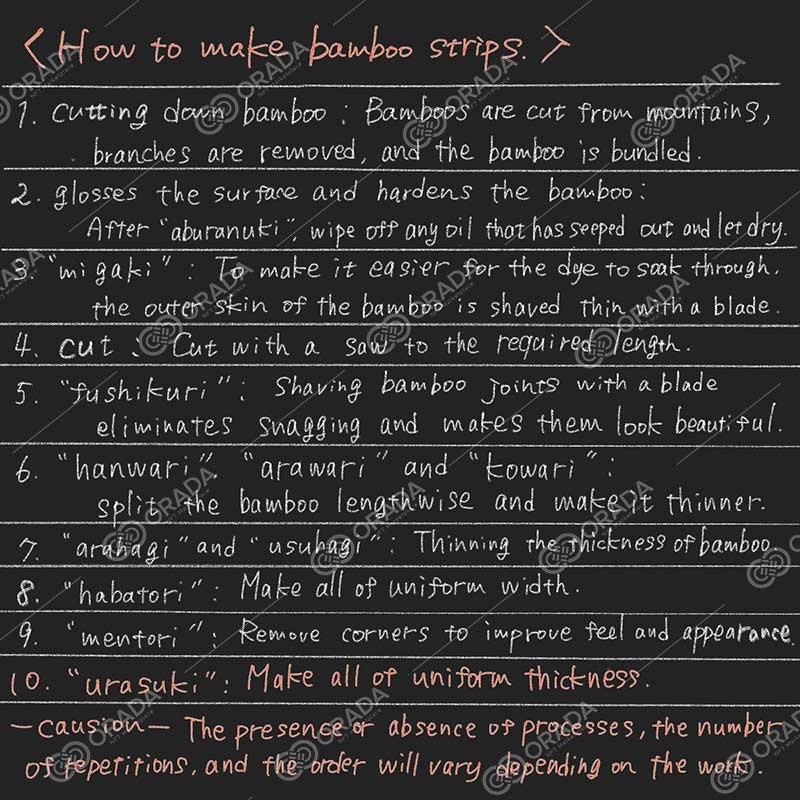 <How to make bamboo strips.>
1. cutting down bamboo : Bamboos are cut from mountains,
branches are removed, and the bamboo is bundled.
2. glosses the surface and hardens the bamboo:
After "aburanuki", wipe off any oil that has seeped out and let dry.
3. "migaki" : To make it easier for the dye to soak through,
the outer skin of the bamboo is shaved thin with a blade.
4. cut : Cut with a saw to the required length.
5. "fushikuri" : Shaving bamboo joints with a blade
eliminates snagging and makes them look beautiful.
6. "hanwari", "arawari" and "kowari" :
split the bamboo lengthwise and make it thinner.
7. "arahagi" and "usuhagi" : Thinning the thickness of bamboo.
8. "habatori" : Make all of uniform width.
9. "mentori" : Remove corners to improve feel and appearance.
10. "urasuki" : Make all of uniform thickness.
—causion— The presence or absence of processes, the number
of repetitions, and the order will vary depending on the work.
ORADA